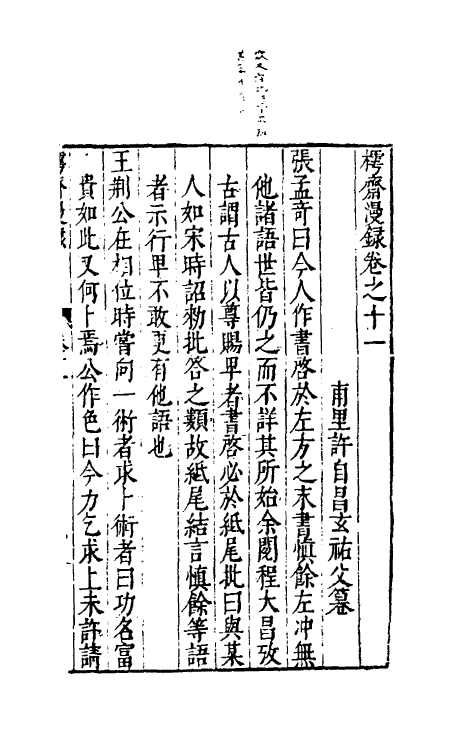 樗齋漫録卷之十一
甫里許自昌玄祐父纂
張孟奇曰今人作書啓於左方之末書慎餘左冲無
他諸語世皆仍之而不詳其所始余閱程大昌攷
古謂古人以尊賜卑者書啓必於紙尾批曰與某
人如宋時詔勑批答之類故紙尾結言慎餘等語
者示行卑不敢更有他語也
王荆公在相位時嘗问一術者求卜術者曰功名富
貴如此又何卜焉公作色曰今力乞求上未許請
樗齋漫录